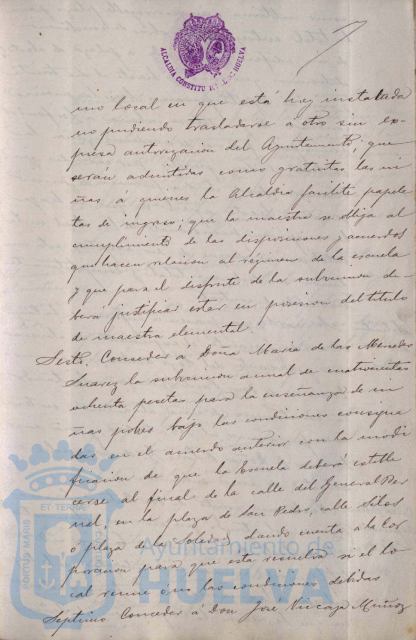 ALCALDIA CONSTITUCIONAL DE HUELVA
mo local en que está hoy instalada
no pudiendo trasladarse á otro sin ex-
presa autorización del Ayuntamiento, que
serán admitidas como gratuitas las ni-
ñas á quienes la Alcaldia facilite papele-
tas de ingreso; que la maestra se obliga al
cumplimiento de las disposiciones y acuerdos
que hacen relacion al régimen de la escuela
y que para el disfrute de la subvencion de-
berá justificar estar en posesion del titulo
de maestra elemental.
Sesto. Conceder á Doña Maria de las Mercedes
Suarez la subvencion anual de cuatrocientas
ochenta pesetas para la enseñanza de ni-
ñas pobres bajo las condiciones consigna-
das en el acuerdo anterior con la modi-
ficacion de que la Escuela deberá estable-
cerse al final de la calle del General Ber-
nal, en la plaza de San Pedro, calle Silos
ó plaza de la Soledad, dando cuenta á la Cor-
poracion para que esta resuelva si el lo-
cal reune ó no las condiciones debidas
Septimo Conceder á Don José Muñoz
PORTUS MARIS
ET TERRAE
Ayuntamiento de
HUELVA